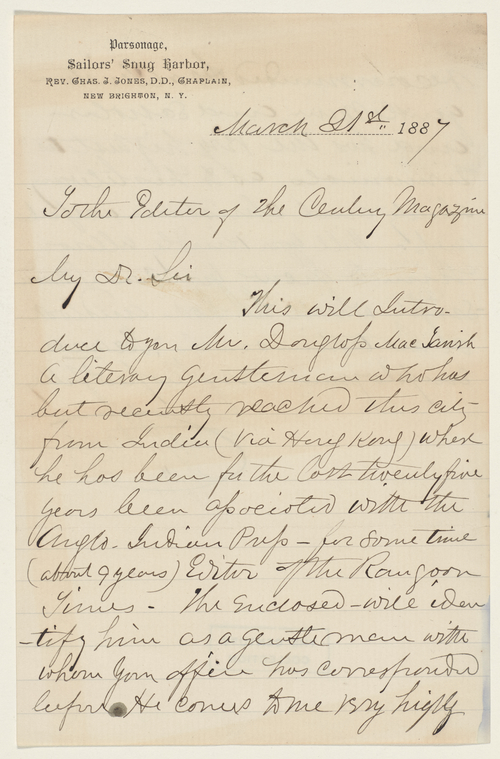 Parsonage,
Sailors' Snug Harbor,
Rev. Chas. J. Jones, D.D., Chaplain,
New Brighton, N. Y.
March 21st 1887
To the Editor of the Century Magazine
My Dr. Sir
This will Intro-
duce to you Mr. Douglass MacTavish
a literary gentleman who has
but recently reached this city
from India (via Hong Kong) where
he has been for the last twenty five
years been associated with the
Anglo-Indian Press - for some time
(about 9 years) Editor of the Rangoon
Times - The enclosed - will iden
-tify him as a gentleman with
whom your office has corresponded
before He comes to me very highly